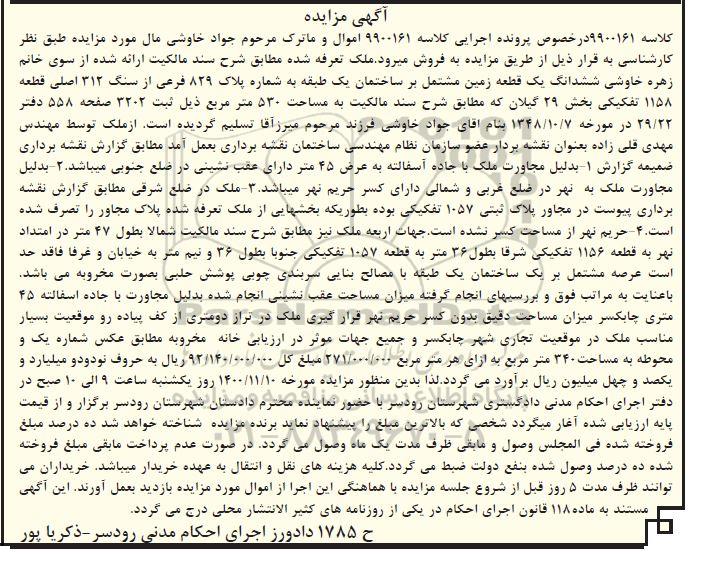 آگهی مزایده
کلاسه ۹۹۰۰۱۶۱درخصوص پرونده اجرایی کلاسه ۹۹۰۰۱۶۱ اموال و ماترک مرحوم جواد خاوشی مال مورد مزایده طبق نظر
کارشناسی به قرار ذیل از طریق مزایده به فروش میرود.ملک تعرفه شده مطابق شرح سند مالکیت ارائه شده از سوی خانم
زهره خاوشی ششدانگ یک قطعه زمین مشتمل بر ساختمان یک طبقه به شماره پلاک ۸۲۹ فرعی از سنگ ۳۱۲ اصلی قطعه
۱۱۵۸ تفکیکی بخش ۲۹ گیلان که مطابق شرح سند مالکیت به مساحت ۵۳۰ متر مربع ذیل ثبت ۳۲۰۲ صفحه ۵۵۸ دفتر
۲۹/۲۲ در مورخه ۱۳۴۸/۱۰/۷ بنام اقای جواد خاوشی فرزند مرحوم میرزآقا تسلیم گردیده است. ازملک توسط مهندس
مهدی قلی زاده بعنوان نقشه بردار عضو سازمان نظام مهندسی ساختمان نقشه برداری بعمل آمد مطابق گزارش نقشه برداری
ضمیمه گزارش ۱-بدلیل مجاورت ملک با جاده آسفالته به عرض ۴۵ متر دارای عقب نشینی در ضلع جنوبی میباشد.۲-بدلیل
مجاورت ملک به نهر در ضلع غربی و شمالی دارای کسر حریم نهر میباشد.۳-ملک در ضلع شرقی مطابق گزارش نقشه
برداری پیوست در مجاور پلاک ثبتی ۱۰۵۷ تفکیکی بوده بطوریکه بخشهایی از ملک تعرفه شده پلاک مجاور را تصرف شده
است.۴-حریم نهر از مساحت کسر نشده است.جهات اربعه ملک نیز مطابق شرح سند مالکیت شمالا بطول ۴۷ متر در امتداد
نهر به قطعه ۱۱۵۶ تفکیکی شرقا بطول۳۶ متر به قطعه ۱۰۵۷ تفکیکی جنوبا بطول ۳۶ و نیم متر به خیابان و غرفا فاقد حد
است عرصه مشتمل بر یک ساختمان یک طبقه با مصالح بنایی سربندی چوبی پوشش حلبی بصورت مخروبه می باشد.
باعنایت به مراتب فوق و بررسیهای انجام گرفته میزان مساحت عقب نشینی انجام شده بدلیل مجاورت با جاده اسفالته ۴۵
متری چابکسر میزان مساحت دقیق بدون کسر حریم نهر قرار گیری ملک در تراز دومتری از کف پیاده رو موقعیت بسیار
مناسب ملک در موقعیت تجاری شهر چابکسر و جمیع جهات موثر در ارزیابی خانه مخروبه مطابق عکس شماره یک و
محوطه به مساحت۳۴۰ متر مربع به ازای هر متر مربع ۲۷۱/۰۰۰/۰۰۰ مبلغ کل ۹۲/۱۴۰/۰۰۰/۰۰۰ ریال به حروف نودودو میلیارد و
یکصد و چهل میلیون ریال برآورد می گردد.لذا بدین منظور مزایده مورخه ۱۴۰۰/۱۱/۱۰ روز یکشنبه ساعت ۹ الی ۱۰ صبح در
دفتر اجرای احکام مدنی دادگستری شهرستان رودسر با حضور نماینده محترم دادستان شهرستان رودسر برگزار و از قیمت
پایه ارزیابی شده آغاز میگردد شخصی که بالاترین مبلغ را پیشنهاد نماید برنده مزایده شناخته خواهد شد ده درصد مبلغ
فروخته شده فی المجلس وصول و مابقی ظرف مدت یک ماه وصول می گردد. در صورت عدم پرداخت مابقی مبلغ فروخته
شده ده درصد وصول شده بنفع دولت ضبط می گردد.کلیه هزینه های نقل و انتقال به عهده خریدار میباشد. خریداران می
توانند ظرف مدت ۵ روز قبل از شروع جلسه مزایده با هماهنگی این اجرا از اموال مورد مزایده بازدید بعمل آورند. این آگهی
مستند به ماده۱۱۸ قانون اجرای احکام در یکی از روزنامه های کثیر الانتشار محلی درج می گردد.
ح ۱۷۸۵ دادورز اجرای احکام مدنی رودسر-ذکریا پور
ParsNamadData
پایگاه اطلاع رسانی مناقصه و مزایده
۰۲۱-۸۸۳۴۹۶۷۰-۵